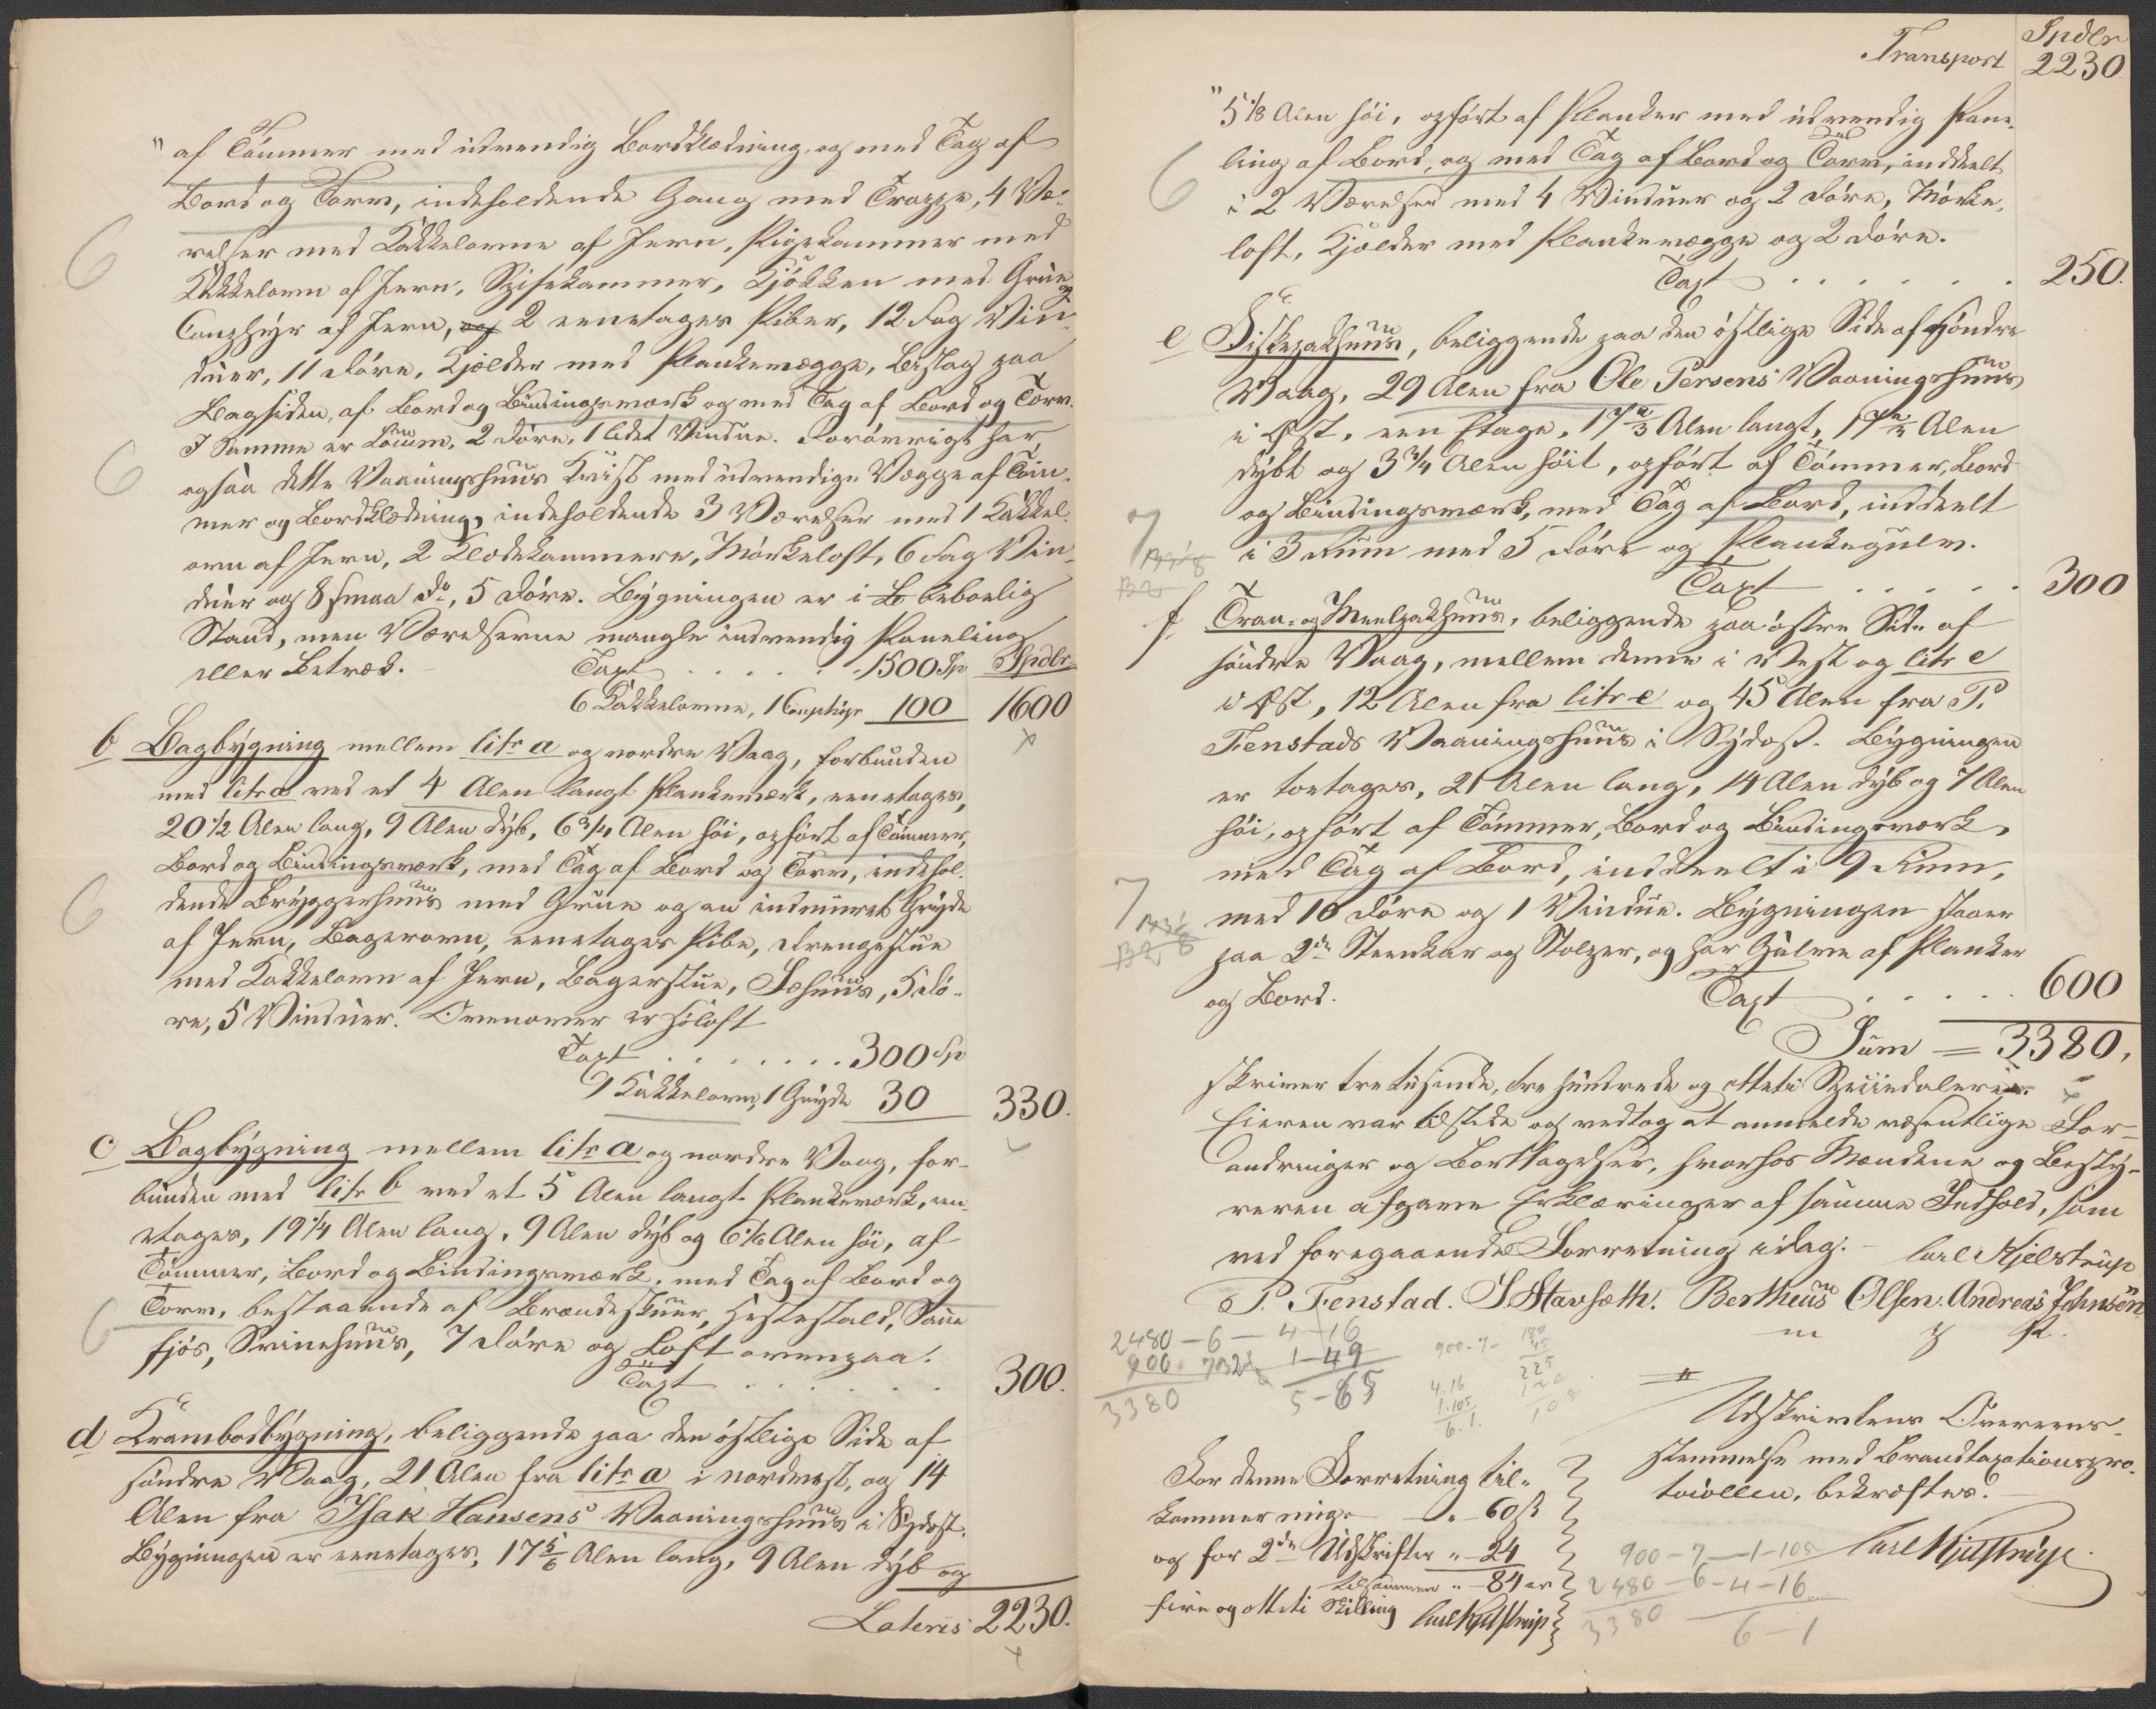 " af Tømmer med udvendig Bordklædning, og med Tag af
Bord og Torv, indeholdende Gang med Trappe, 4 Væ-
relser med Kakkelovne af Jern, Pigekammer med
Kakkelovn af Jern, Spisekammer, Kjøkken med Grue og
Comphyr af Jern, og 2 eenetages Piber, 12 Fag Vin-
duer, 11 Døre, Kjelder med Plankevægge, Bislag paa
Bagsiden, af Bord og Bindingsværk og med Tag af Bord og Torv.
I Samme er Locum, 2 Døre, 1 lidet Vindue. Forøvrigt har
ogsaa dette Vaaningshuus Kvist med udvendige Vægge af Tøm-
mer og Bordklædning, indeholdende 3 Værelser med 1 Kakkel-
ovn af Jern, 2 Klædekammere, Mørkeloft, 6 Fag Vin-
duer og 8 smaa do, 5 Døre. Bygningen er i beboelig
Stand, men Værelserne mangle indvendig Paneling
eller Betræk. Taxt . . . . . 1500 Sp Spdlr
6 Kakkelovne, 1 Comphyr 100 1600
b Bagbygning mellem litr a og nordre Vaag, forbunden
med litr a ved et 4 Alen langt Plankeværk, eenetages,
20 1/2 Alen lang, 9 Alen dyb, 6 3/4 Alen høi, opført af Tømmer,
Bord og Bindingsværk, med Tag af Bord og Torv, indehol-
6 dende Bryggerhuus med Grue og en indmuret Gryde
af Jern, Bagerovn, eenetages Pibe, Drengestue
med Kakkelovn af Jern, Bagerstue, Fæhuus, 5 Dø-
re, 5 Vinduer. Ovenover er Høloft
Taxt . . . . . . . . 300 Sp
1 Kakkelovn, 1 Gryde 30 330.
c Bagbygning mellem litr a og nordre Vaag, for-
bunden med litr b ved et 5 Alen langt Plankeværk, een-
etages, 19 1/4 Alen lang, 9 Alen dyb og 6 1/6 Alen høi, af
Tømmer, Bord og Bindingsværk, med Tag af Bord og
6 Torv, bestaaende af Brændeskuur, Hestestald,
Fjøs, Svinehuus, 7 Døre og Loft ovenpaa.
Taxt . . . . . . 300.
d Krambodbygning, beliggende paa den østlige Side af
søndre Vaag, 21 Alen fra litr a i nordvest, og 14
Alen fra Isak Hansens Vaaningshuus i Sydost.
Bygningen er eenetages, 17 5/6 Alen lang, 9 Alen dyb og
Lateris 2230.
Spdlr
Transport 2230
" 5 1/8 Alen høi, opført af Planker med udvendig Pane-
6 ling af Bord, og med Tag af Bord og Torv, inddeelt
i 2 Værelser med 4 Vinduer og 2 Døre, Mørke-
loft, Kjelder med Plankevægge og 2 Døre.
Taxt . . . . . . 250.
e Fiskepakhuus, beliggende paa den østlige Side af søndre
Vaag, 29 Alen fra Ole Persens Vaaningshuus
i Øst, een Etage, 17 2/3 Alen langt, 17 2/3 Alen
dybt og 3 3/4 Alen høit, opført af Tømmer, Bord
og Bindingsværk, med Tag af Bord, inddeelt
7 i 3 Rum med 5 Døre og Plankegulv.
Taxt . . . . . 300
f Tran- og Meelpakhuus, beliggende paa østre Side af
søndre Vaag, mellem denne i Vest og litr e
i Øst, 12 Alen fra litr e og 45 Alen fra P.
Fenstads Vaaningshuus i Sydost. Bygningen
er toetages, 21 Alen lang, 14 Alen dyb og 7 Alen
høi, opført af Tømmer, Bord og Bindingsværk,
med Tag af Bord, inddeelt i 9 Rum,
7 med 10 Døre og 1 Vindue. Bygningen staaer
paa 2de Steenkar og Stolper, og har Gulve af Planker
og Bord. Taxt . . . . . 600
Sum = 3380,
skriver tre tusinde, tre hundrede og otteti Speciedaler.
Eieren var tilstede og vedtog at anmelde væsentlige For-
andringer og Borttagelser, hvorhos Mændene og Besty-
reren afgave Erklæringer af samme Indhold, som
ved foregaaende Forretning idag. Carl Kjelstrup
P. Fenstad. S. Stavseth. Bertheus Olsen. Andreas Johnsen
m p P.
2480 - 6 - 4 - 16
900 7 1 - 49
3380 5 - 65
900 - 7 -
4.16
1.105
6.1.
180
45
225
For denne Forretning til-
kommer mig " - 60 ß
og for 2de Udskrifter " - 24
tilsammen " - 84 er
fire og otteti Skilling Carl Kjelstrup
Udskrivtens Overeens-
stemmelse med Brandtaxationspro-
tocollen, bekræftes.
Carl Kjelstrup.
900 - 7 - 1 - 105
2480 - 6 - 4 - 16
3380 6 - 1